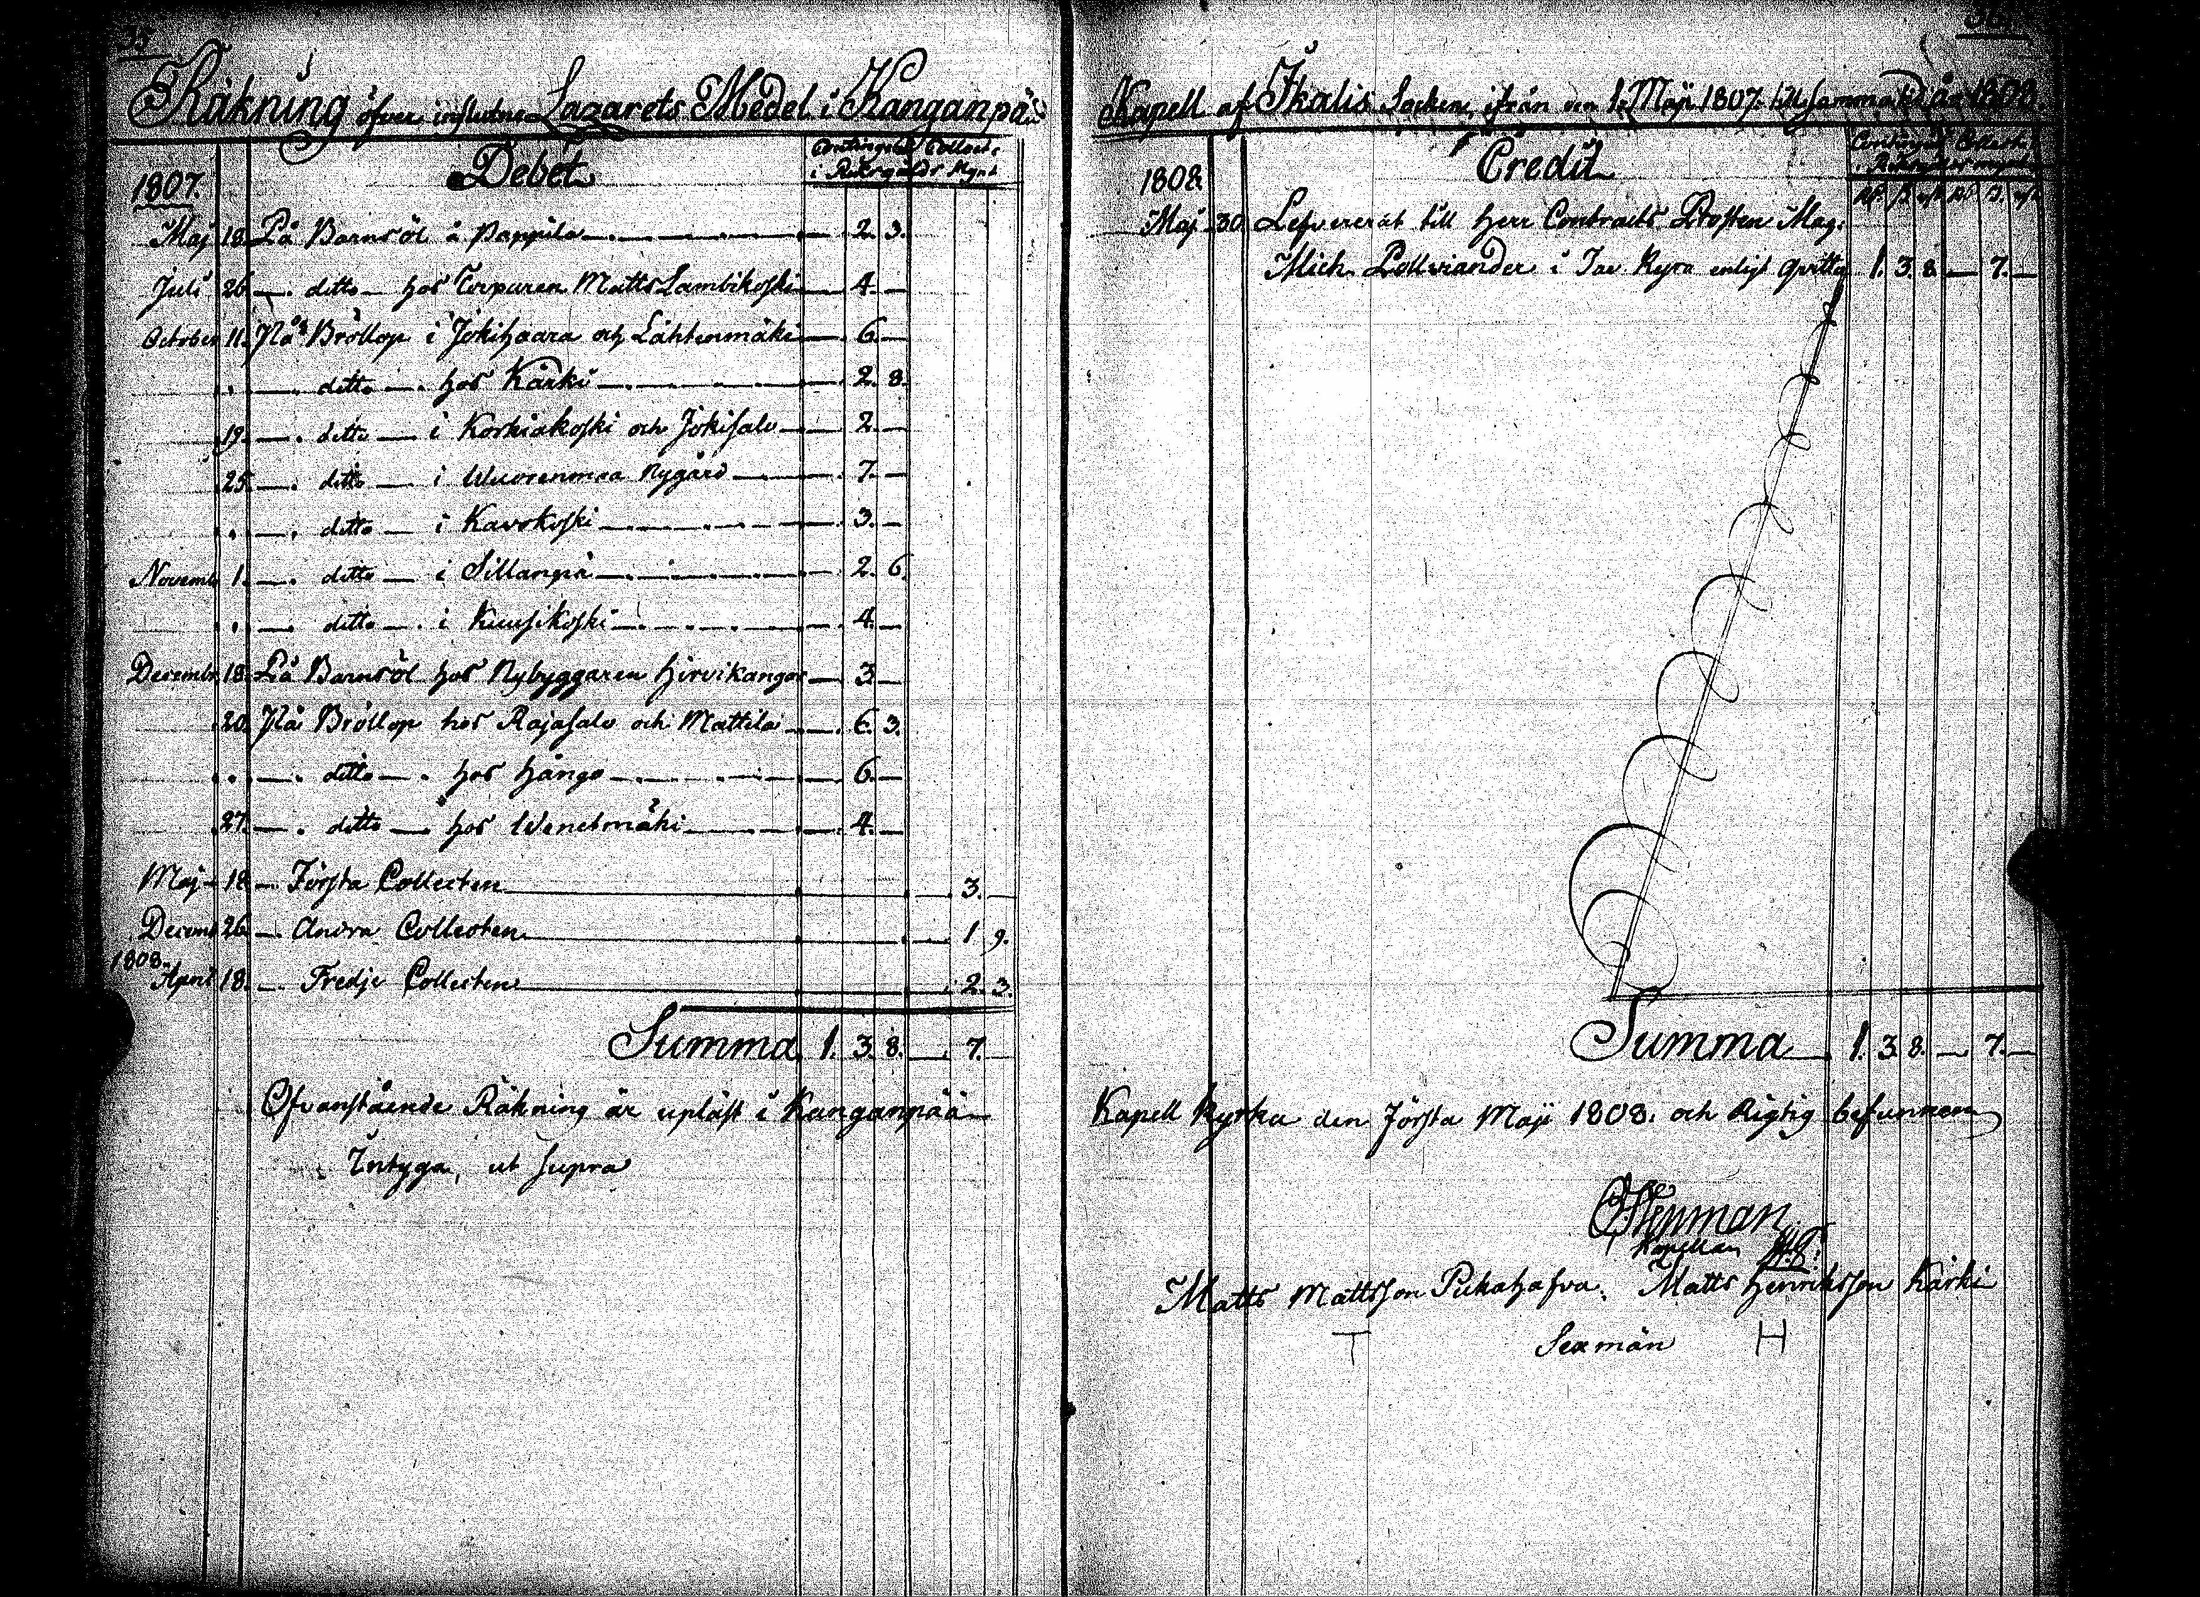 Räkning öfver influtne Lazarets Medel i Kanganpää
Debet
Contingent Collect.
i Riksgälds Mynt
1807.
Maj 18. På Barnsöl å Pappila — 2. 3.
Juli 26. — ditto — hos Torparen Matts Lambikoski — 4. —
October 11. På Bröllop i Jokihaara och Lähtenmäki — 6. —
" — ditto — hos Kärki — 2. 8.
19. — ditto — i Korkiakoski och Jokisalo — 2. —
25. — ditto — i Wuorenmaa Nygård — 7. —
" — ditto — i Karokoski — 3. —
Novemb. 1. — ditto — i Sillanpä — 2. 6.
" — ditto — i Kuusikoski — 4. —
Decembr. 18. På Barnsöl hos Nybyggaren Hirvikangas — 3. —
20. På Bröllop hos Rajasalo och Mattila — 6. 3.
" — ditto — hos Hångo — 6. —
27. — ditto — hos Wenetmäki — 4. —
Maj 18. — Första Collecten — 3. —
Decemb. 26. — Andra Collecten — 1. 9.
1808.
April 18. — Tredje Collecten — 2. 3.
Summa 1. 3. 8. — 7. —
Ofvanstående Räkning är upläst i Kanganpää
Intyga, ut supra
Kapell af Ikalis Socken, ifrån den 1. Maji 1807. till samma tid år 1808.
Credit
Contingent Collect.
i Riksgälds mynt
1808.
Rd. ß. rst. Rd. ß. rst.
Maj 30. Lefvererat till Herr Contracts Prosten Mag.
Mich. Pollviander i Tav. Kyro enligt qvitto 1. 3. 8. — 7. —
Summa 1. 3. 8. — 7. —
Kapell Kyrka den första Maji 1808. och Rigtig befunnen
Kapellan
Matts Mattsson Pukahafva. Matts Henriksson Kärki
T Sexmän H